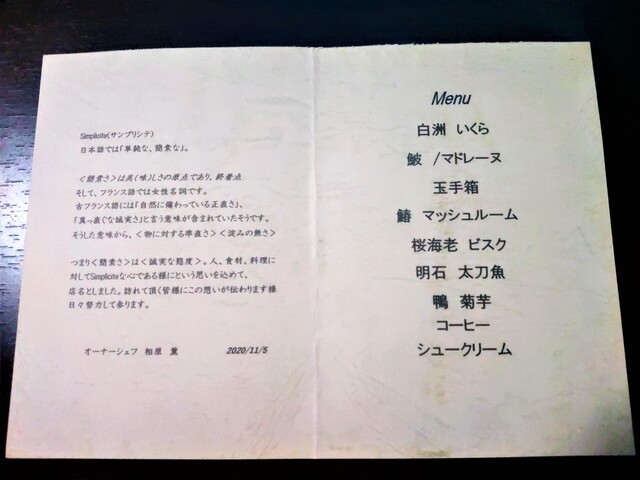 Simplicite(サンプリシテ)
日本語では「単純な、簡素な」。
＜簡素さ＞は美(味)しさの原点であり、終着点
そして、フランス語では女性名詞です。
古フランス語には「自然に備わっている正直さ」、
「真っ直ぐな誠実さ」と言う意味が含まれていたそうです。
そうした意味から、＜物に対する率直さ＞＜淀みの無さ＞
つまり＜簡素さ＞は＜誠実な態度＞。人、食材、料理に
対してSimpliciteな心である様にという思いを込めて、
店名としました。訪れて頂く皆様にこの想いが伝わります様
日々努力して参ります。
オーナーシェフ 相原 薫 2020/11/5
Menu
白洲 いくら
鮍 /マドレーヌ
玉手箱
鰆 マッシュルーム
桜海老 ビスク
明石 太刀魚
鴨 菊芋
コーヒー
シュークリーム